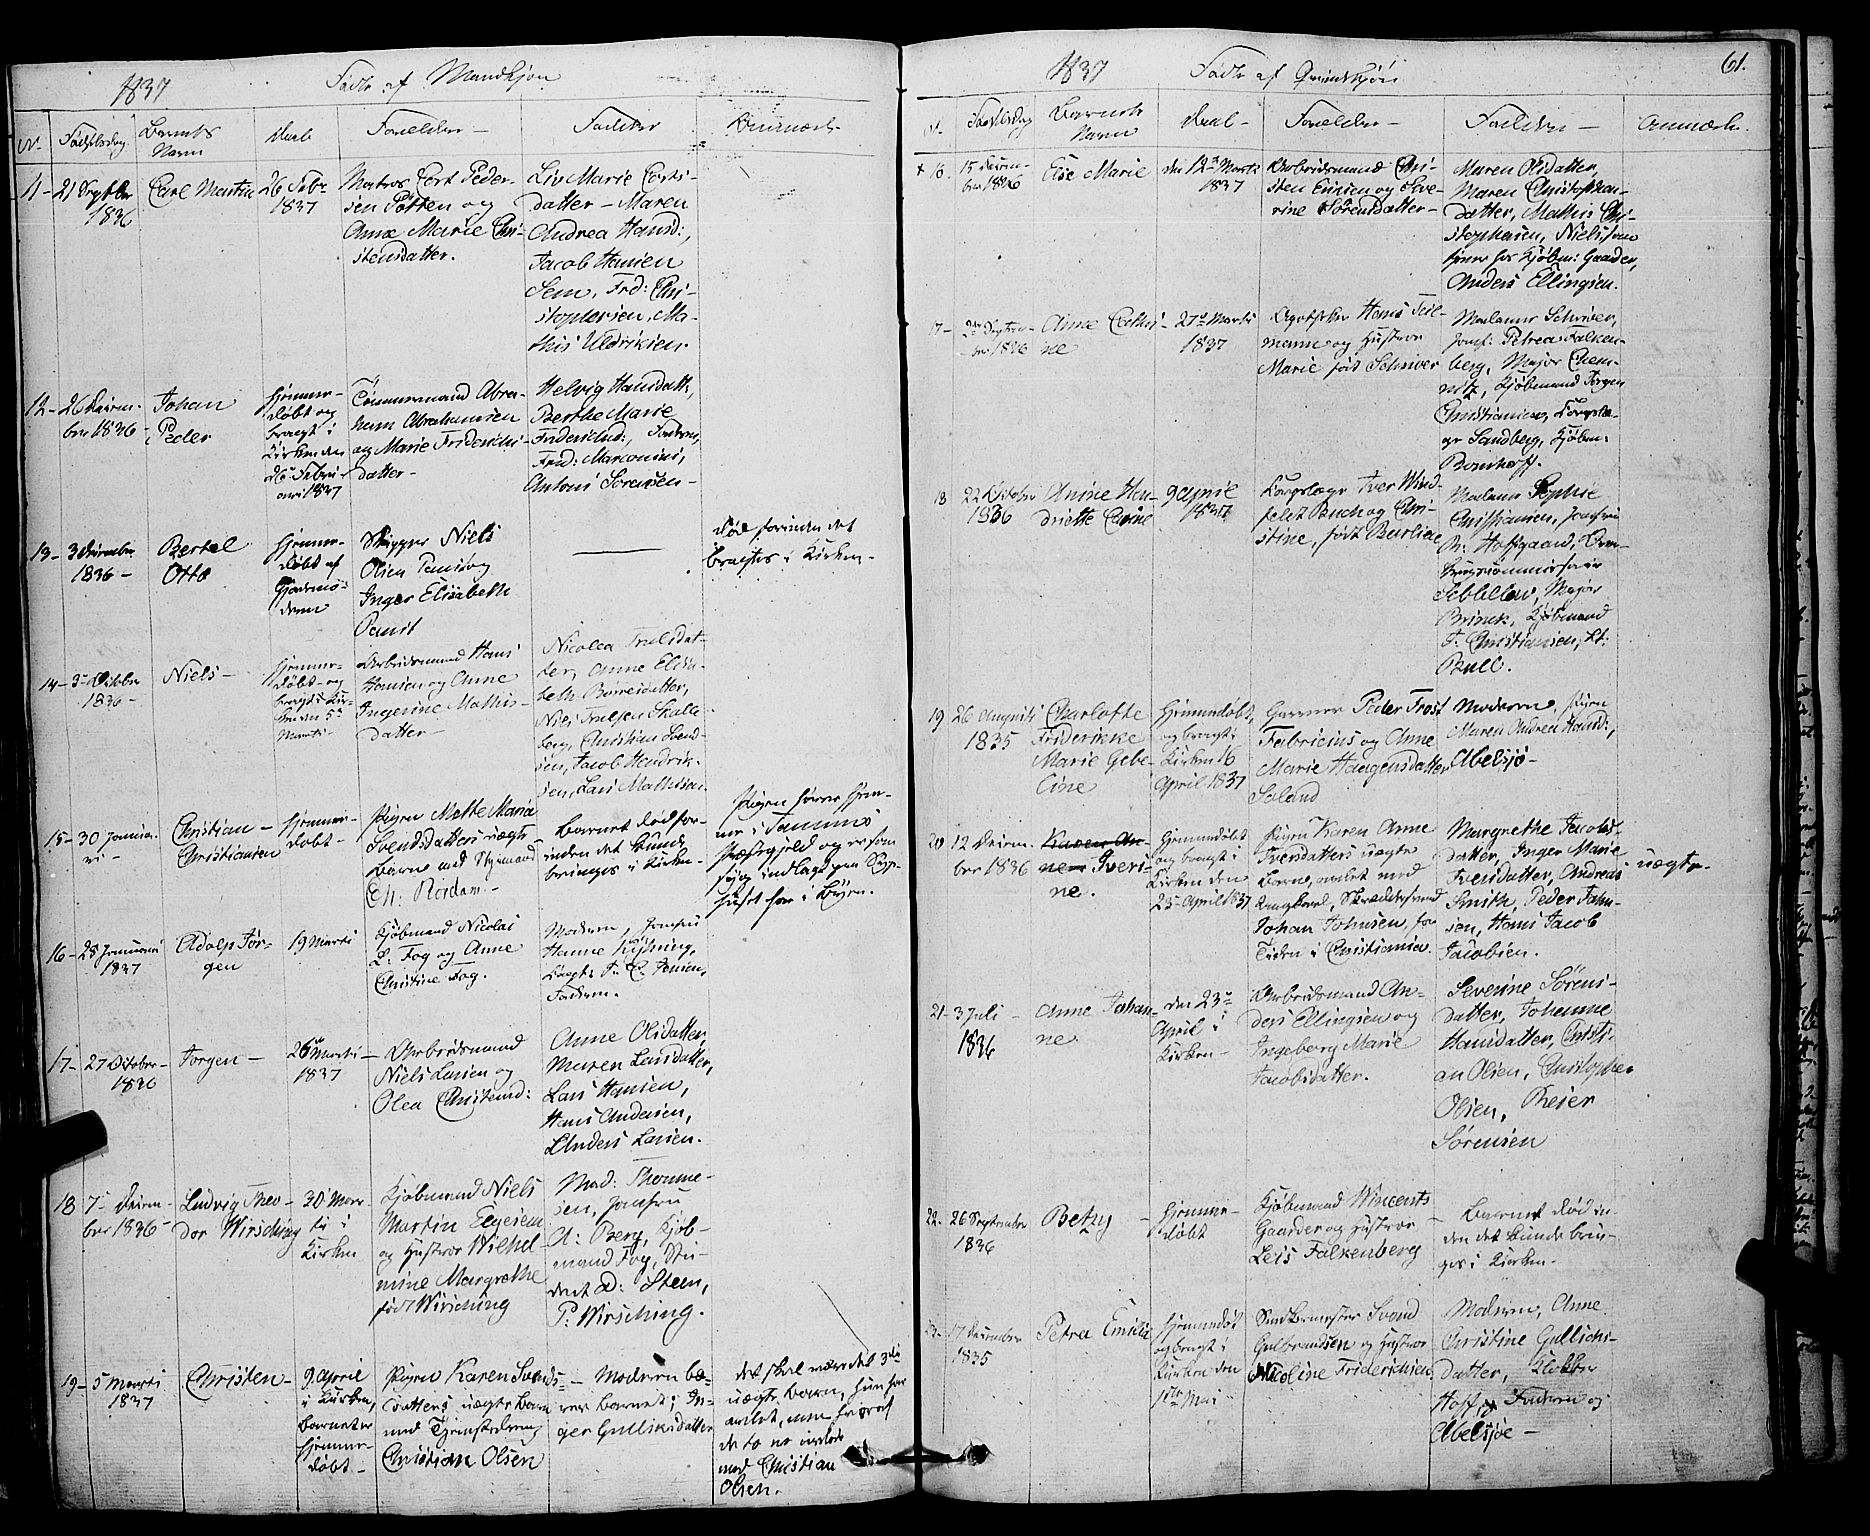 1837
Fødte af Mandkjøn
No. Fødselsdag Barnets Navn Daab Forældre Faddere Anmærk.
11 - 21 Septbr 1836
Carl Martin
26 Febr 1837
Matros Cort Peder-
sen Potten og
Anne Marie Chri-
stensdatter.
Liv Marie Corts-
datter - Maren
Andrea Hansd:,
Jacob Hansen
Sem, Frd: Chri-
stophersen, Ma-
this Uldriksen.
12 - 26 Decem-
ber 1836
Johan
Peder
hjemme-
døbt og
bragt i
Kirken den
26 Febru-
ari 1837
Tømmermand Abra-
ham Abrahamsen
og Marie Friderichs-
datter -
Helvig Hansdatt:,
Berthe Marie
Friderichsd:, Faderen,
Frid: Marconius,
Antoni Sørensen -
13 - 3 Decembr
1836 -
Bertel
Otto
hjemme-
døbt af
Gjordemo-
deren
Skipper Niels
Olsen og
Inger Elisabeth
død forinden det
bragtes i Kirken -
14 - 3 Octobr
1836 -
Niels -
hjemme-
døbt og
bragt i Kir-
ken den 5
Marts
Arbeidsmand Hans
Hansen og Anne
Ingerine Mathis-
datter -
Nicolea Trulsdat-
ter, Anne Elisa-
beth Børresdatter,
Niels Trulsen Skalle-
berg, Christian Svend-
sen, Jacob Hendrik-
sen, Lars Mathisen.
15 - 30 Janua-
ri -
Christian -
Christiansen
hjemme-
døbt -
Pigen Mette Maria
Svendsdatters uægte
Barn med Styrmand
Ch: Rørdam -
Barnet død for-
inden det kunde
bringes i Kirken -
Pigen hører hjem-
me i
Præstegjeld og er som
syg indlagt paa Syge-
huset her i Byen.
16 - 28 Januari
1837
Adolp Jør-
gen
19 Marts
Kjøbmand Nicolai
L. Fog og Anne
Christine Fog.
Moderen, Jomfru
Hanne
Capt: F. C. Jensen,
Faderen.
17 - 27 October
1836
Jørgen -
26 Marts
1837
Arbeidsmand
Niels Larsen og
Olea Christensd:
Anne Olsdatter,
Maren Larsdatter,
Lars Hansen,
Hans Andersen,
Anders Larsen.
18 7 Decem-
ber 1836 -
Ludvig Theo-
dor Wirsching
30 Mar-
ts i
Kirken
Kjøbmand Niels
Martin Eegesen
og Hustrue Wilhel-
mine Margrethe
født Wirsching
Mad: Thomme-
sen, Jomfru
A: Berg, Kjøb-
mand Fog, Stu-
dent A: Steen,
P: Wirsching.
19 - 5 Marts
1837
Christen -
9 April
i Kirken,
Barnet er
hjemme-
døbt -
Pigen Karen Svends-
datters uægte Barn
med Tjenestedreng
Christian Olsen
- Moderen bæ-
rer Barnet; In-
ger Gulliksdatter
det skal være det 3die
uægte Barn, hun har
avlet, men hvoraf
de to ere avlede
med Christian
Olsen.
1837
Fødte af Qvindekjøn
61.
N. Fødselsdag Barnets Navn Daab - Forældre - Faddere - Anmærk.
+ 16. 15 Decem-
ber 1836
Else Marie
den 12 Marts
1837
Arbeidsmand Chri-
sten Ennsen og Seve-
rine Sørensdatter -
Maren Olsdatter,
Maren Christophers-
datter, Mathis Chri-
stophersen, Niels som
tjener hos Kjøbm: Gaarder,
Anders Ellingsen.
17 - 2 Septem-
ber 1836
Anne Cathri-
ne
27 Marts
1837
Apotheker Hans Teil-
mann og Hustrue
Marie født Schriver
Madame Schriver,
Jomf: Petrea Falken-
berg, Major Chem-
nitz, Kjøbmand Jørgen
Christiansen,
Sandberg, Kjøbm:
Bomhoff.
18 22 October
1836
Anine Hen-
driette Cathrine
9 April
1837
Corpslæge Iver Wind-
feldt Buch og Chri-
stine, født Barlien
Madame Sophie
Christiansen, Jomfru
B: Hoffgaard,
Major
Brinck, Kjøbmand
F. Christiansen, Lt:
Bull.
19 26 Augusti
1835
Charlotte
Friderikke
Marie Gebe-
cine
hjemmedøbt,
og bragt i
Kirken 16
April 1837
Garver Peder Frost
Fabricius og Anne
Marie Haagensdatter
Soland
Moderen, Pigen
Maren Andrea Hansd:,
Abelsjø -
20 12 Decem-
ber 1836
Karen An-
ne Iveri-
ne.
hjemmedøbt
og bragt i
Kirken den
23 April 1837
Pigen Karen Anne
Iversdatters uægte
Barn, avlet med
Ungkarl, Skræddersvend
Johan Johnsen, for
Tiden i Christiania.
Margrethe Jacobs-
datter, Inger Marie
Iversdatter, Andreas
Smith, Peder John-
sen, Hans Jacob
Jacobsen.
uægte.
21 - 3 Juli -
1836
Anne Johan-
ne
den 23
April i
Kirken -
Arbeidsmand An-
ders Ellingsen og
Ingeborg Marie
Jacobsdatter.
Severine Sørens-
datter, Johanne
Hansdatter, Christi-
an Olsen, Christopher
Olsen, Reier
Sørensen
22 - 26 September
1836
Betzy -
hjemme-
døbt
Kjøbmand Wincents
Gaarder og Hustrue
Leis Falkenberg
- Barnet død in-
den det kunde brin-
ges i Kirken -
23 - 17 December
1835
Petra Emilie
hjemmedøbt
og bragt i
Kirken den
1ste Mai
Snedkermester Svend
Gulbrandsen og Hustrue
Nicoline Friderichsen
Moderen, Anne
Christine Gullichs-
datter, Klokker
Hoff, Faderen og
Abelsjøe -